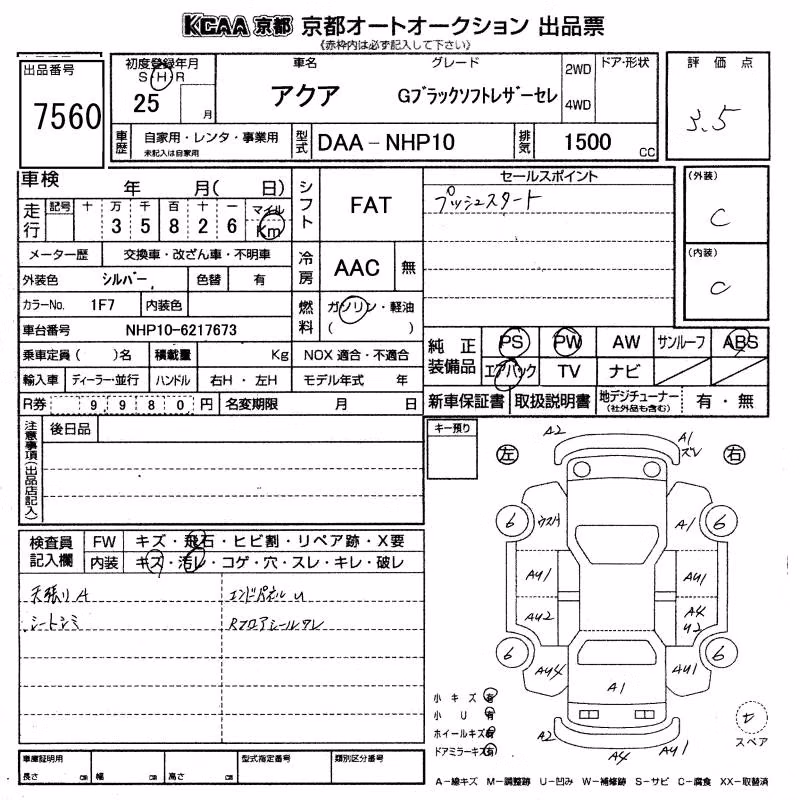 KCAA 京都 京都オートオークション 出品票
《赤枠内は必ず記入して下さい》
出品番号
7560
初度登録年月
S H R
25 月
車名
アクア
グレード
Gブラックソフトレザーセレ
2WD
4WD
ドア・形状
評価点
3.5
車歴
自家用・レンタ・事業用
未記入は自家用
型式
DAA－NHP10
排気
1500 CC
車検 年 月( 日)
走行
記号 十 万 千 百 十 一 マイル
3 5 8 2 6 Km
メーター歴 交換車・改ざん車・不明車
外装色 シルバー 色替 有
カラーNo. 1F7 内装色
車台番号 NHP10-6217673
乗車定員( )名 積載量 Kg NOX 適合・不適合
輸入車 ディーラー・並行 ハンドル 右H・左H モデル年式 年
R券 9,980円 名変期限 月 日
シフト
FAT
冷房
AAC 無
燃料
ガソリン・軽油
( )
セールスポイント
プッシュスタート
(外装)
C
(内装)
C
純正装備品
PS PW AW サンルーフ ABS
エアバック TV ナビ
新車保証書 取扱説明書 地デジチューナー 有・無
(社外品も含む)
注意事項(出品店記入)
後日品
キー預り
左 右
A2 A1
ズレ
6 A1 6
AU1 AU1
AU2 A4
U2
6 AU4 AU1 6
A1
A2 A4 AU1
検査員記入欄
FW キズ・飛石・ヒビ割・リペア跡・X要
内装 キズ・汚レ・コゲ・穴・スレ・キレ・破レ
天張りA エンドパネルU
シートシミ Rフロアシールワレ
小キズ 有
小U 有
ホイールキズ 有
ドアミラーキズ 有
スペア
車庫証明用
長さ cm 幅 cm 高さ cm
型式指定番号
類別区分番号
A－線キズ M－調整跡 U－凹み W－補修跡 S－サビ C－腐食 XX－取替済